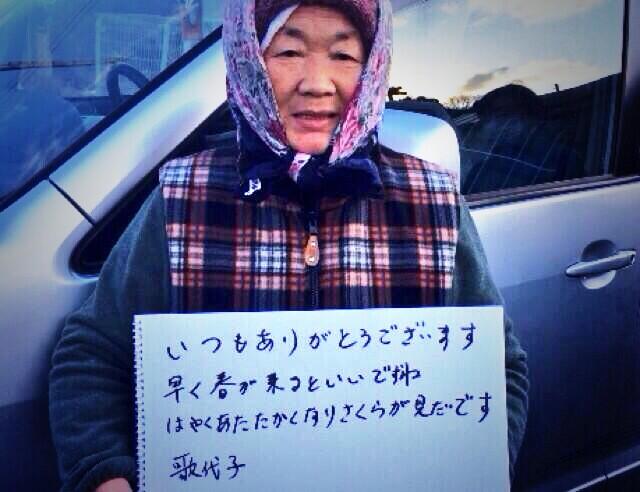 いつもありがとうございます
早く春が来るといいですね
はやくあたたかくなりさくらが見たいです
歌代子